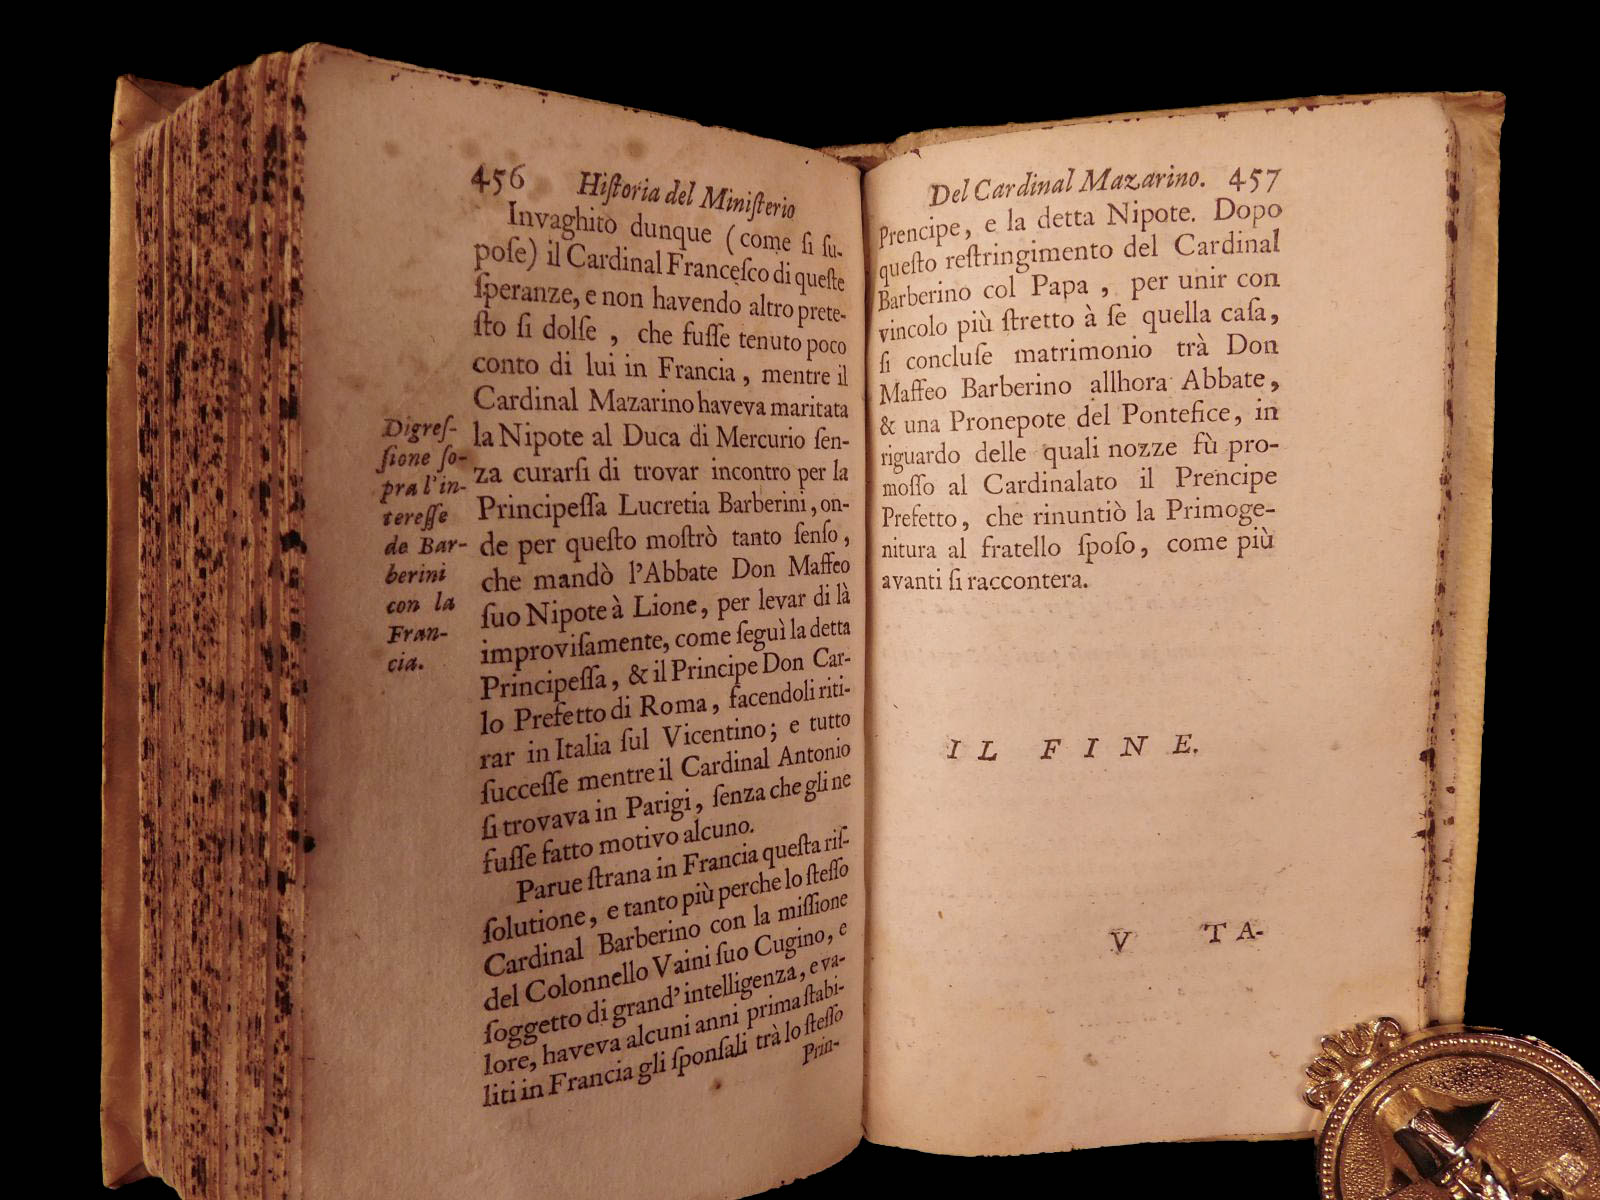 456 Hiſtoria del Miniſterio
Invaghito dunque (come ſi ſu-
poſe) il Cardinal Franceſco di queſte
ſperanze, e non havendo altro prete-
ſto ſi dolſe , che fuſſe tenuto poco
conto di lui in Francia , mentre il
Cardinal Mazarino haveva maritata
la Nipote al Duca di Mercurio ſen-
za curarſi di trovar incontro per la
Principeſſa Lucretia Barberini, on-
de per queſto moſtrò tanto ſenſo ,
che mandò l'Abbate Don Maffeo
ſuo Nipote à Lione, per levar di là
improviſamente, come ſeguì la detta
Principeſſa, & il Principe Don Car-
lo Prefetto di Roma, facendoli riti-
rar in Italia ſul Vicentino; e tutto
ſucceſſe mentre il Cardinal Antonio
ſi trovava in Parigi, ſenza che gli ne
fuſſe fatto motivo alcuno.
Parue ſtrana in Francia queſta riſ-
ſolutione, e tanto più perche lo ſteſſo
Cardinal Barberino con la miſſione
del Colonnello Vaini ſuo Cugino, e
ſoggetto di grand' intelligenza, e va-
lore, haveva alcuni anni prima ſtabi-
liti in Francia gli ſponſali trà lo ſteſſo
Prin-
Digreſ-
ſione ſo-
pra l'in-
tereſſe
de Bar-
berini
con la
Fran-
cia.
Del Cardinal Mazarino. 457
Prencipe, e la detta Nipote. Dopo
queſto reſtringimento del Cardinal
Barberino col Papa , per unir con
vincolo più ſtretto à ſe quella caſa,
ſi concluſe matrimonio trà Don
Maffeo Barberino allhora Abbate,
& una Pronepote del Pontefice, in
riguardo delle quali nozze fù pro-
moſſo al Cardinalato il Prencipe
Prefetto, che rinuntiò la Primoge-
nitura al fratello ſpoſo, come più
avanti ſi raccontera.
IL FINE.
V TA-